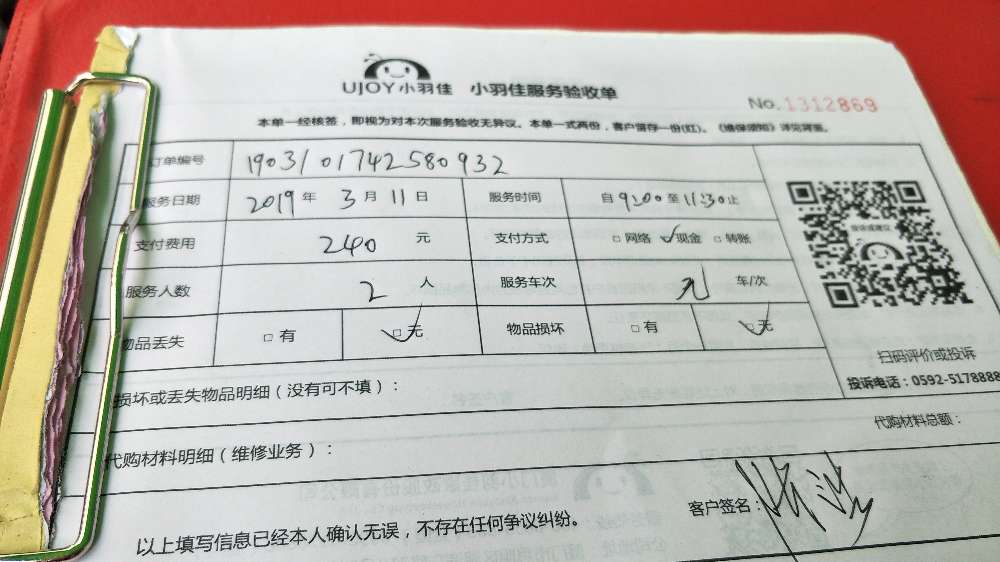 UJOY小羽佳 小羽佳服务验收单
No.1312869
本单一经核签，即视为对本次服务验收无异议。本单一式两份，客户留存一份(红)。《维保须知》详见背面。
订单编号 1903101742580932
服务日期 2019年3月11日 服务时间 自9:00至11:30止
支付费用 240元 支付方式 □网络 ☑现金 □转账
服务人数 2人 服务车次 无 车/次
物品丢失 □有 ☑无 物品损坏 □有 ☑无
投诉或建议
扫码评价或投诉
投诉电话：0592-5178888
损坏或丢失物品明细（没有可不填）：
代购材料明细（维修业务）：
代购材料总额：
客户签名：
以上填写信息已经本人确认无误，不存在任何争议纠纷。